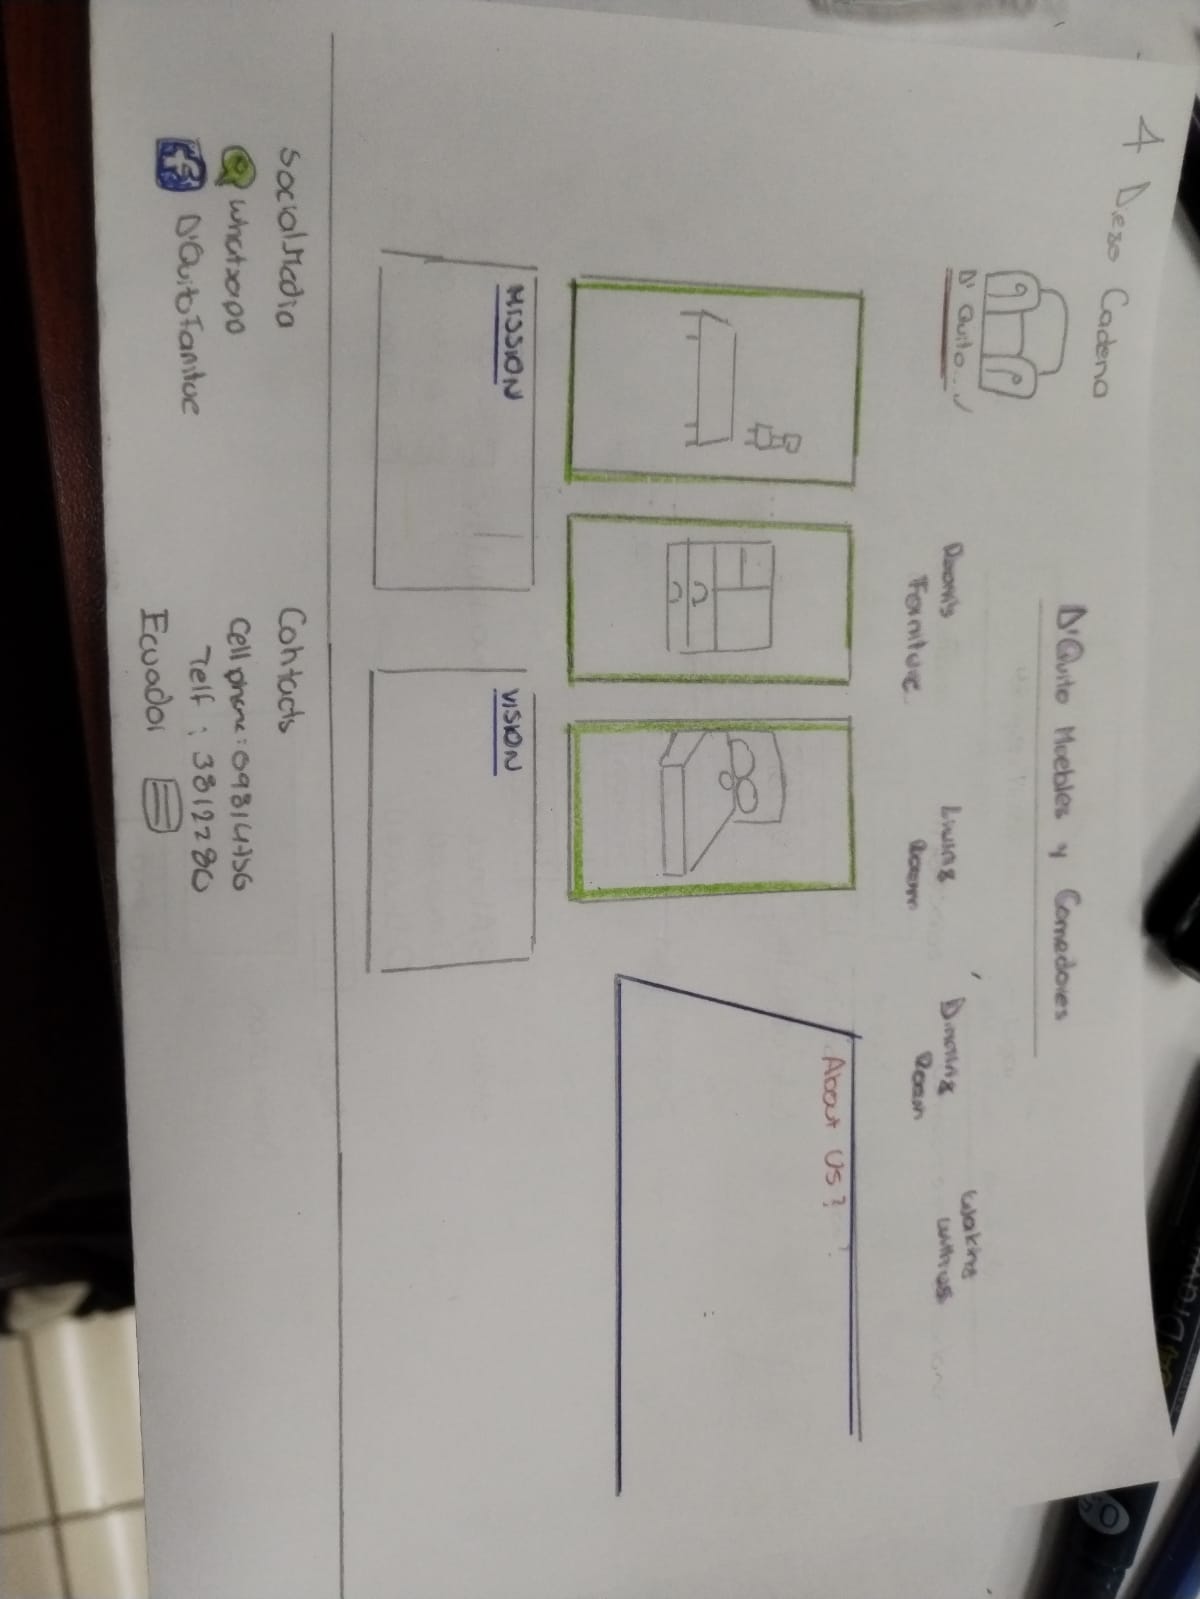 4 Diego Cadena
D'Quito Muebles y Comedores
D'Quito...
Rooms
Forniture
Living
Room
Dinning
Room
Woking
with us
About Us?
MISSION
VISION
Social Media
Whatsapp
D'QuitoFanitue
Contacts
Cell phone: 09814756
Telf: 3812280
Ecuador
Draw